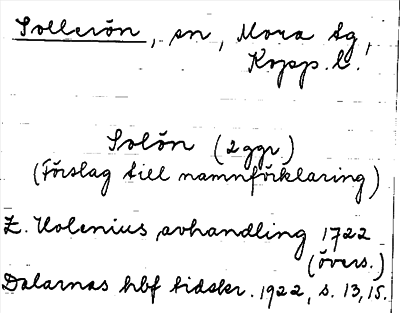 Sollerön, sn, Mora tg,
Kopp. l.
Solön (2 ggr)
(Förslag till namnförklaring)
Z. Holenius avhandling 1722
(övers.)
Dalarnas hbf tidskr. 1922, s. 13, 15.